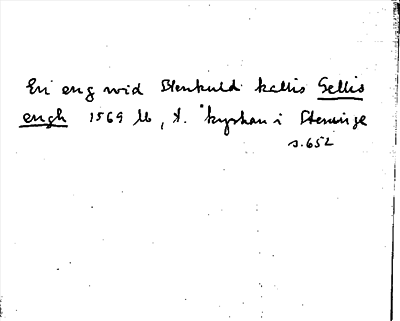 En eng wid Stenkuld kallis Gellis
engh 1569 Jb, t. kyrkan i Steninge
s.652